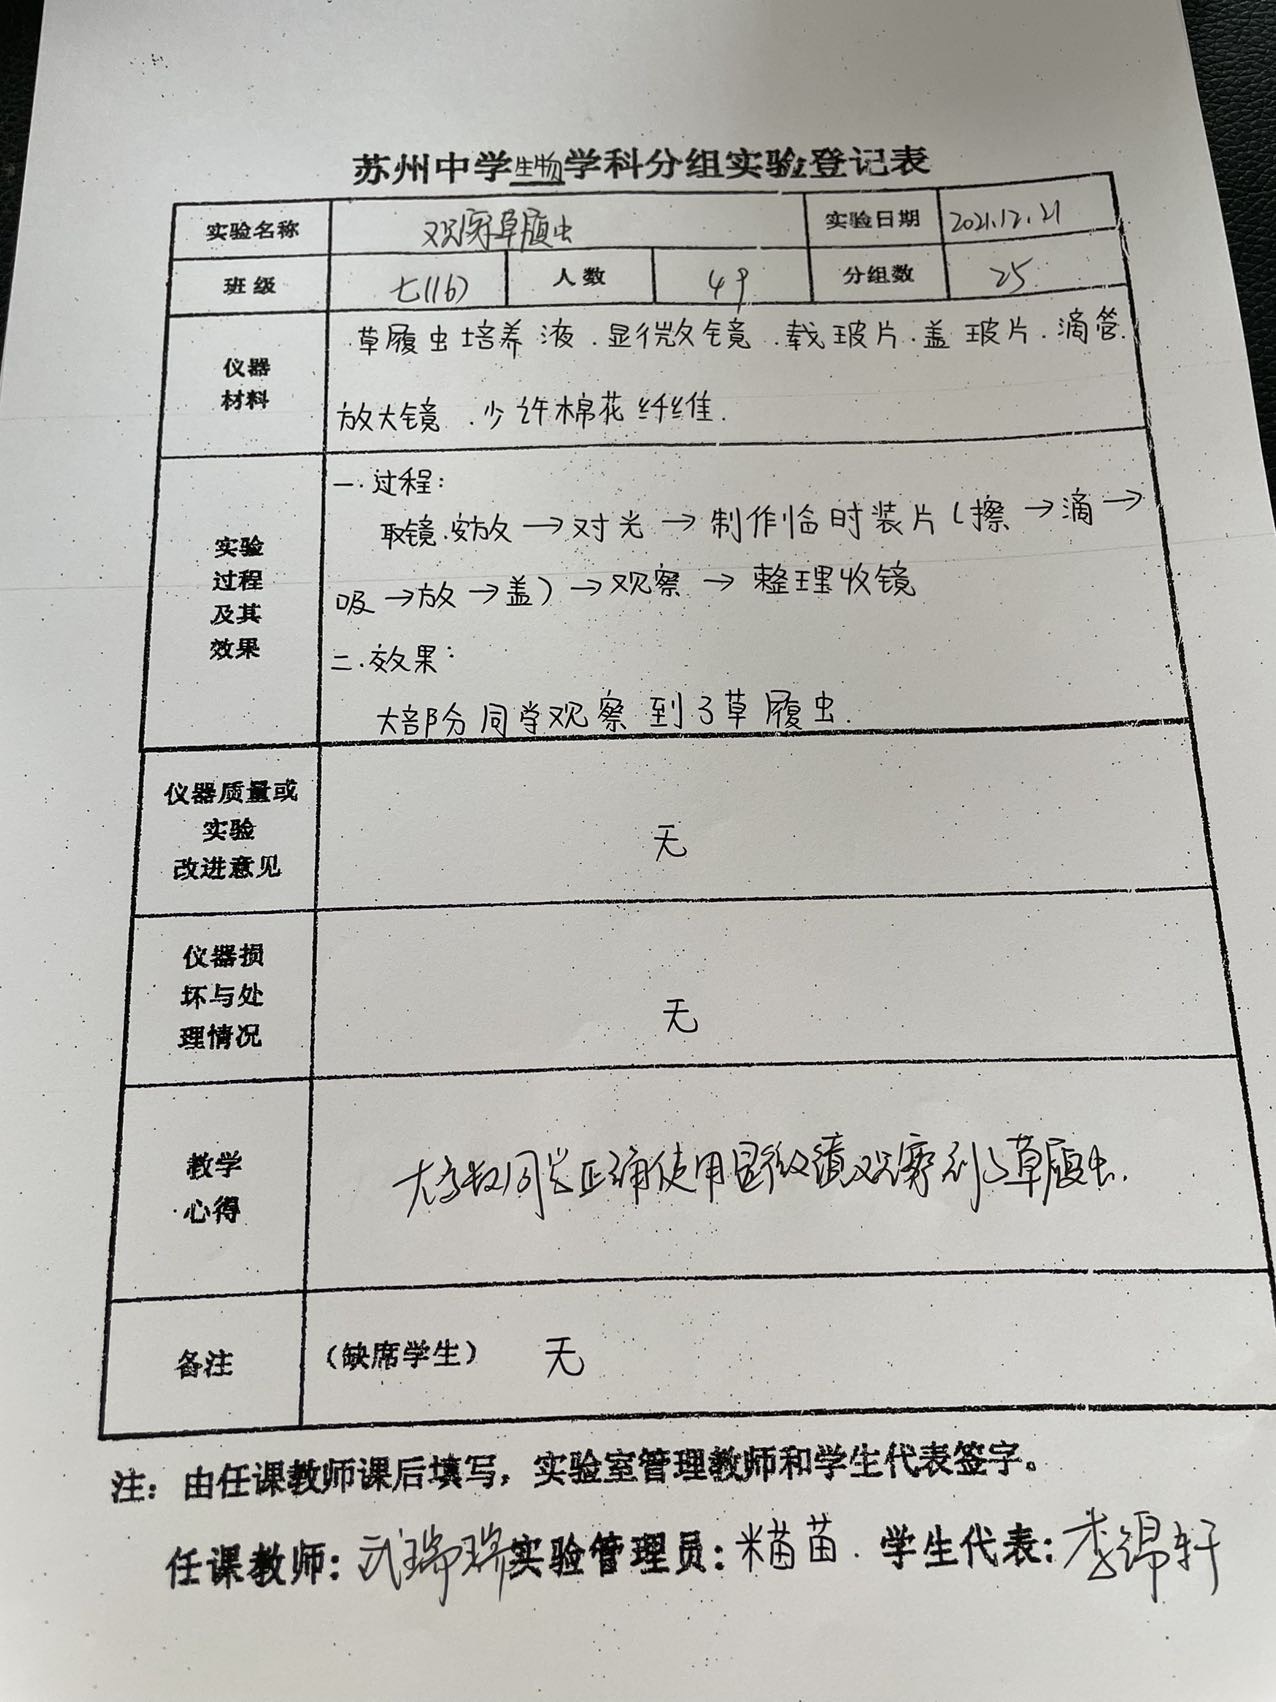 苏州中学生物学科分组实验登记表
实验名称 观察草履虫 实验日期 2021.12.21
班级 七(16) 人数 49 分组数 25
仪器材料 草履虫培养液.显微镜.载玻片.盖玻片.滴管.
放大镜.少许棉花纤维.
实验过程及其效果
一.过程:
取镜.安放→对光→制作临时装片(擦→滴→
吸→放→盖)→观察→整理收镜
二.效果:
大部分同学观察到了草履虫.
仪器质量或
实验
改进意见
无
仪器损
坏与处
理情况
无
教学
心得
大多数同学正确使用显微镜观察到了草履虫.
备注 (缺席学生) 无
注:由任课教师课后填写,实验室管理教师和学生代表签字。
任课教师:武瑞瑞 实验管理员:米苗苗. 学生代表:李锦轩